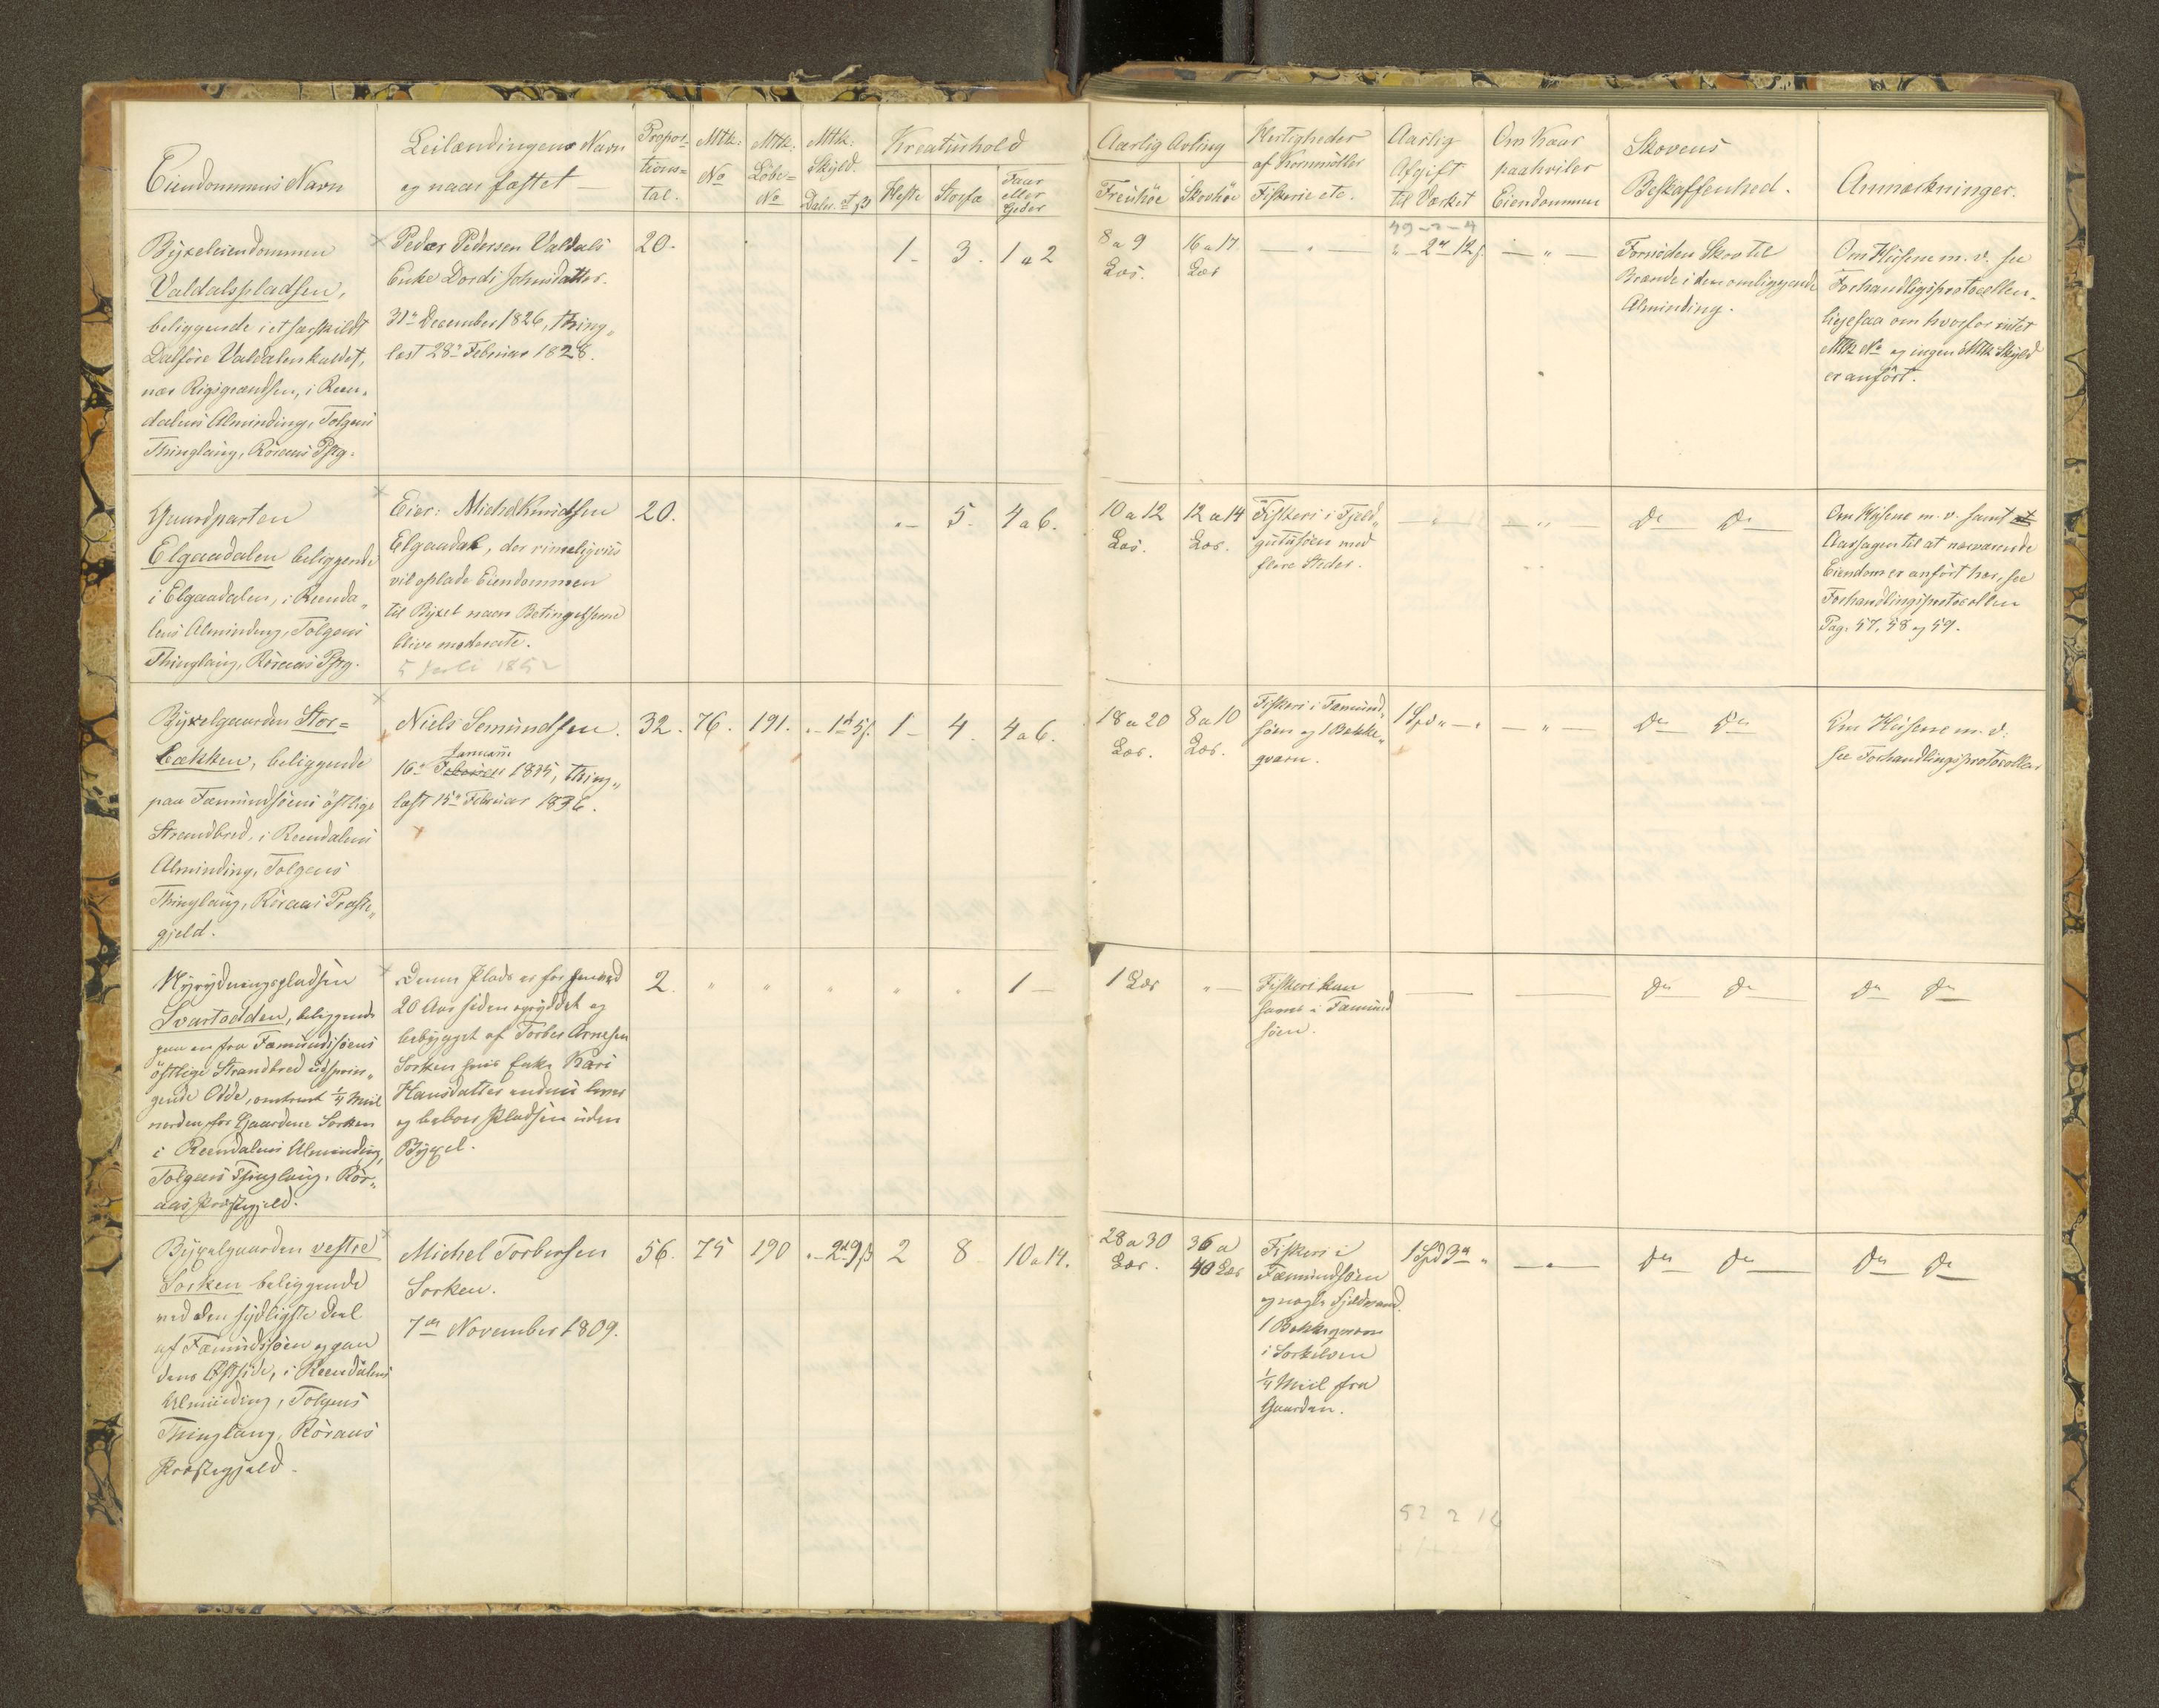 Eiendommens Navn
Leilændingens Navn
og naar fæstet
Propor-
tions-
tal.
Mtk:
No
Mtk:
Löbe-
No
Mtk:
Skyld.
Daler. ort ß
Kreaturhold
Heste
Storfæ
Faar
eller
Geder
Aarlig Avling
Frenhöe
Skovhöe
Herligheder
af Kornmöller
Fiskerie etc.
Aarlig
Afgift
til Værket
Om Kaar
paahviler
Eiendommen
Skovens
Beskaffenhed.
Anmærkninger.
Byxeleiendommen
Valdalspladsen,
beliggende i et særskildt
Dalföre Valdalen kaldet,
nær Rigsgrændsen, i Reen-
dalens Alminding, Tolgens
Thinglaug, Röraas Pstg.
Peder Pedersen Valdals
Enke Dordi Johnsdatter.
31te December 1826, thing-
læst 28de Februar 1828.
20.
1 -
3.
1 a 2
8 a 9
Læs.
16 a 17.
Læs
— " —
" - 2 12 ß.
— " —
Fornöden Skov til
Brænde i den omliggende
Alminding.
Om Husene m. v. see
Forhandligsprotocollen,
ligesaa om hvorfor intet
Mtk No og ingen Mtk Skyld
er anfört.
Gaardparten
Elgaadalen beliggende
i Elgaadalen, i Reenda-
lens Alminding, Tolgens
Thinglaug, Röraas Pstg.
Eier: Michel Knudsen
Elgaadal, der rimeligviis
vil oplade Eiendommen
til Byxel naar Betingelserne
blive moderate.
5 Juli 1852
20.
" -
5.
4 a 6.
10 a 12
Læs.
12 a 14
Læs.
Fiskeri i Fjeld-
gutusöen med
flere Steder.
— " —
— " —
Do Do
Om Husene m. v. samt
Aarsagen til at nærværende
Eiendom er anfört her, see
Forhandlingsprotocollen
Pag. 57, 58 og 59.
Byxelgaarden Stor-
bækken, beliggende
paa Fæmundsöens östlige
Strandbred, i Reendalens
Alminding, Tolgens
Thinglaug, Röraas Præste-
gjeld.
Niels Semundsen.
Januar
16de Februar 1835, thing-
læst 15de Februar 1836.
32.
76.
191.
" - 1 5 ß.
1 -
4.
4 a 6.
18 a 20
Læs.
8 a 10
Læs.
Fiskeri i Fæmund-
söen og 1 Bække-
qværn.
1 Spd " — "
— " —
Do Do
Om Husene m. v.
see Forhandlingsprotocollen
Nyrydningspladsen
Svartodden, beliggende
paa en fra Fæmundsöens
östlige Strandbred udsprin-
gende Odde, omtrent 1/4 Miil
norden for Gaardene Sorken
i Reendalens Alminding,
Tolgens Thinglaug, Rör-
aas Præstegjeld.
Denne Plads er for henved
20 Aar siden opryddet og
bebygget af Torber Arnesen
Sorken hvis Enke Kari
Hansdatter endnu lever
og beboer Pladsen uden
Byxel.
2.
"
"
"
"
"
1 -
1 Læs
" —
Fiskeri kan
haves i Fæmund
söen.
Do Do
Do Do
Byxelgaarden vestre
Sorken beliggende
ved den sydligste Deel
af Fæmundsöen og paa
dens Østside, i Reendalens
Alminding, Tolgens
Thinglaug, Röraas
Præstegjeld.
Michel Torbersen
Sorken.
7de November 1809.
56.
75
190
" - 2 9 ß
2
8
10 a 14.
28 a 30
Læs.
36 a
40 Læs
Fiskeri i
Fæmundsöen
og nogle Fjeldvand.
1 Bækkeqværn
i Sorkelven
1/4 Miil fra
Gaarden.
1 Spd 3 "
— " —
Do Do
Do Do
52 2 16